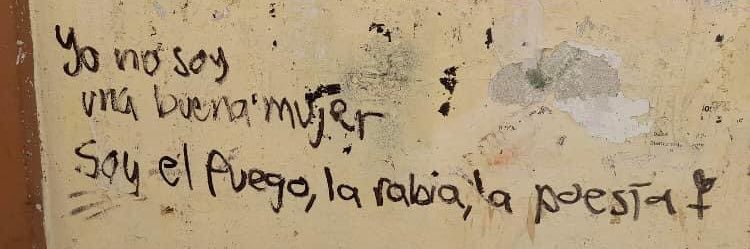 Yo no soy
una buena mujer
Soy el fuego, la rabia, la poesía